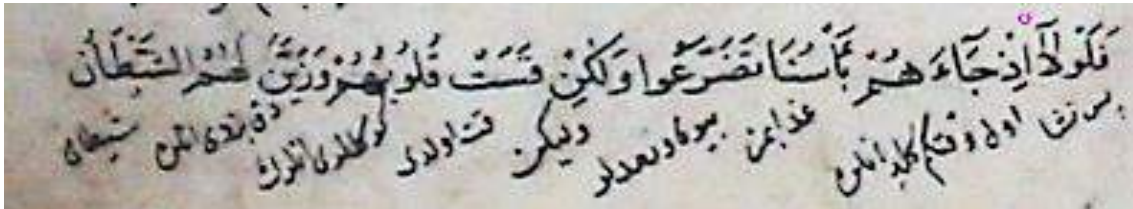 فَلَوْلَآ اِذْ جَآءَ هُمْ بَأْسُنَا تَضَرَّعُوا وَلٰكِنْ قَسَتْ قُلُوبُهُمْ وَزَيَّنَ لَهُمُ الشَّيْطَانُ
اول وقتكم كلدى انلره عذابمز وليكن قتى اولدى كوكللرى انلرك انلره شيطان